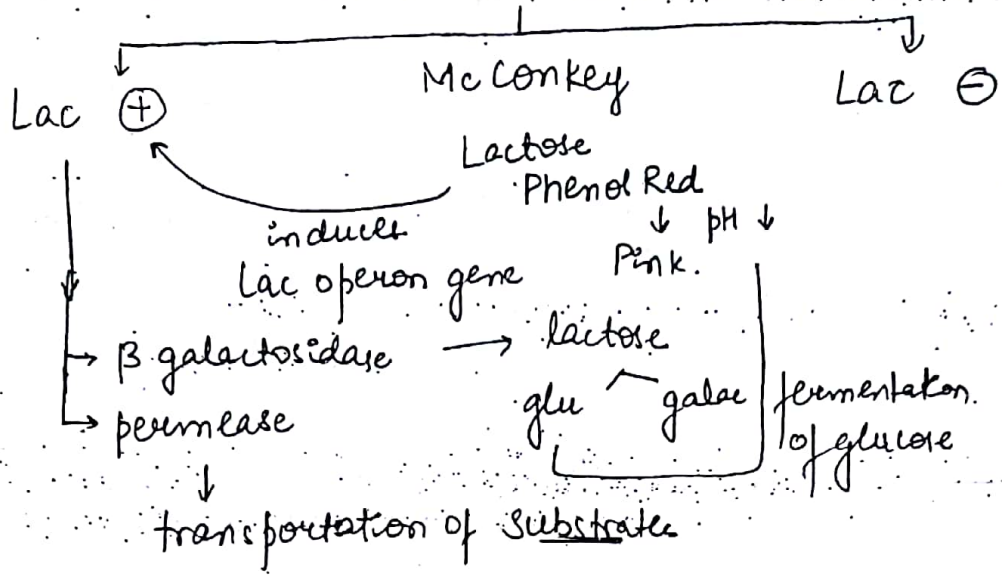 Mc Conkey
Lac ⊕
Lac ⊖
Lactose
Phenol Red
↓ pH ↓
Pink.
induces
Lac operon gene
→ β galactosidase → lactose
glu galac
fermentation
of glucose
→ permease
↓
transportation of substrates